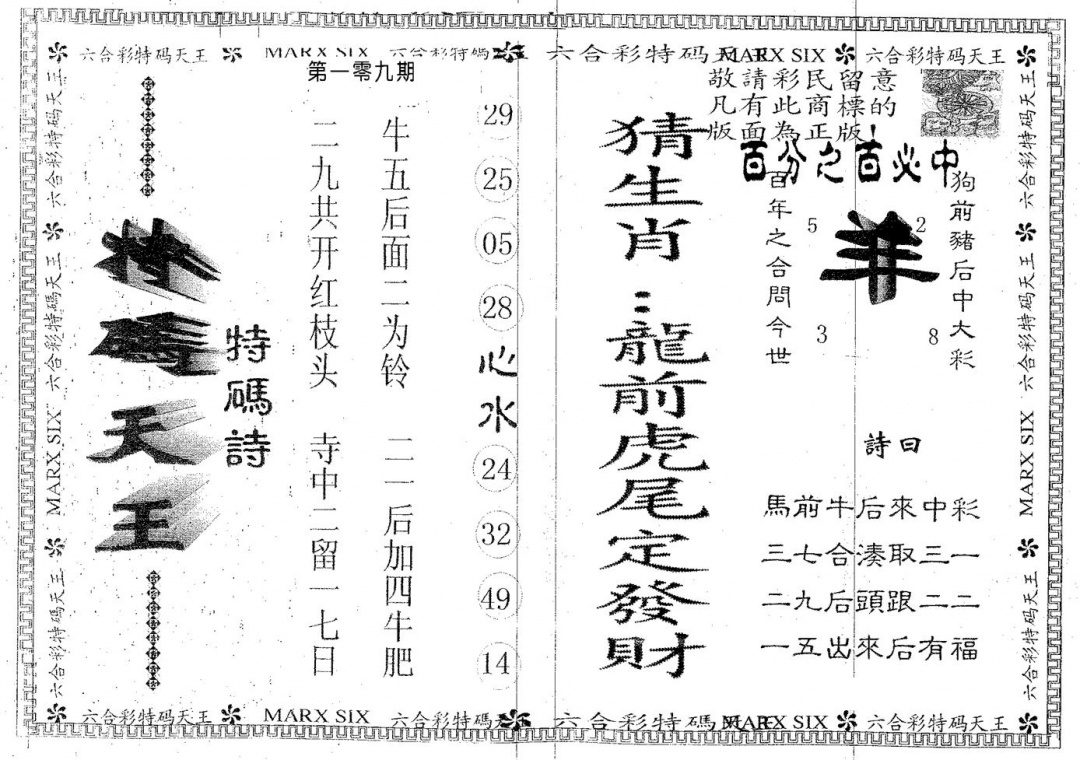 六合彩特码天王 MARX SIX 六合彩特碼天王 六合彩特码天王 MARX SIX 六合彩特码天王
第一零九期
敬請彩民留意
凡有此商標的
版面為正版!
百分之百必中
狗前豬后中大彩
羊
5
2
3
8
百年之合問今世
詩曰
馬前牛后來中彩
三七合湊取三一
二九后頭跟二二
一五出來后有福
猜生肖:龍前虎尾定發財
29
25
05
28
心水
24
32
49
14
牛五后面二为铃 二一后加四牛肥
二九共开红枝头 寺中二留一七日
特碼詩
特碼天王
六合彩特码天王 六合彩特碼天王 MARX SIX 六合彩特码天王
六合彩特码天王 六合彩特碼天王 MARX SIX 六合彩特码天王
六合彩特码天王 MARX SIX 六合彩特碼天王 六合彩特碼天王 MARX SIX 六合彩特码天王